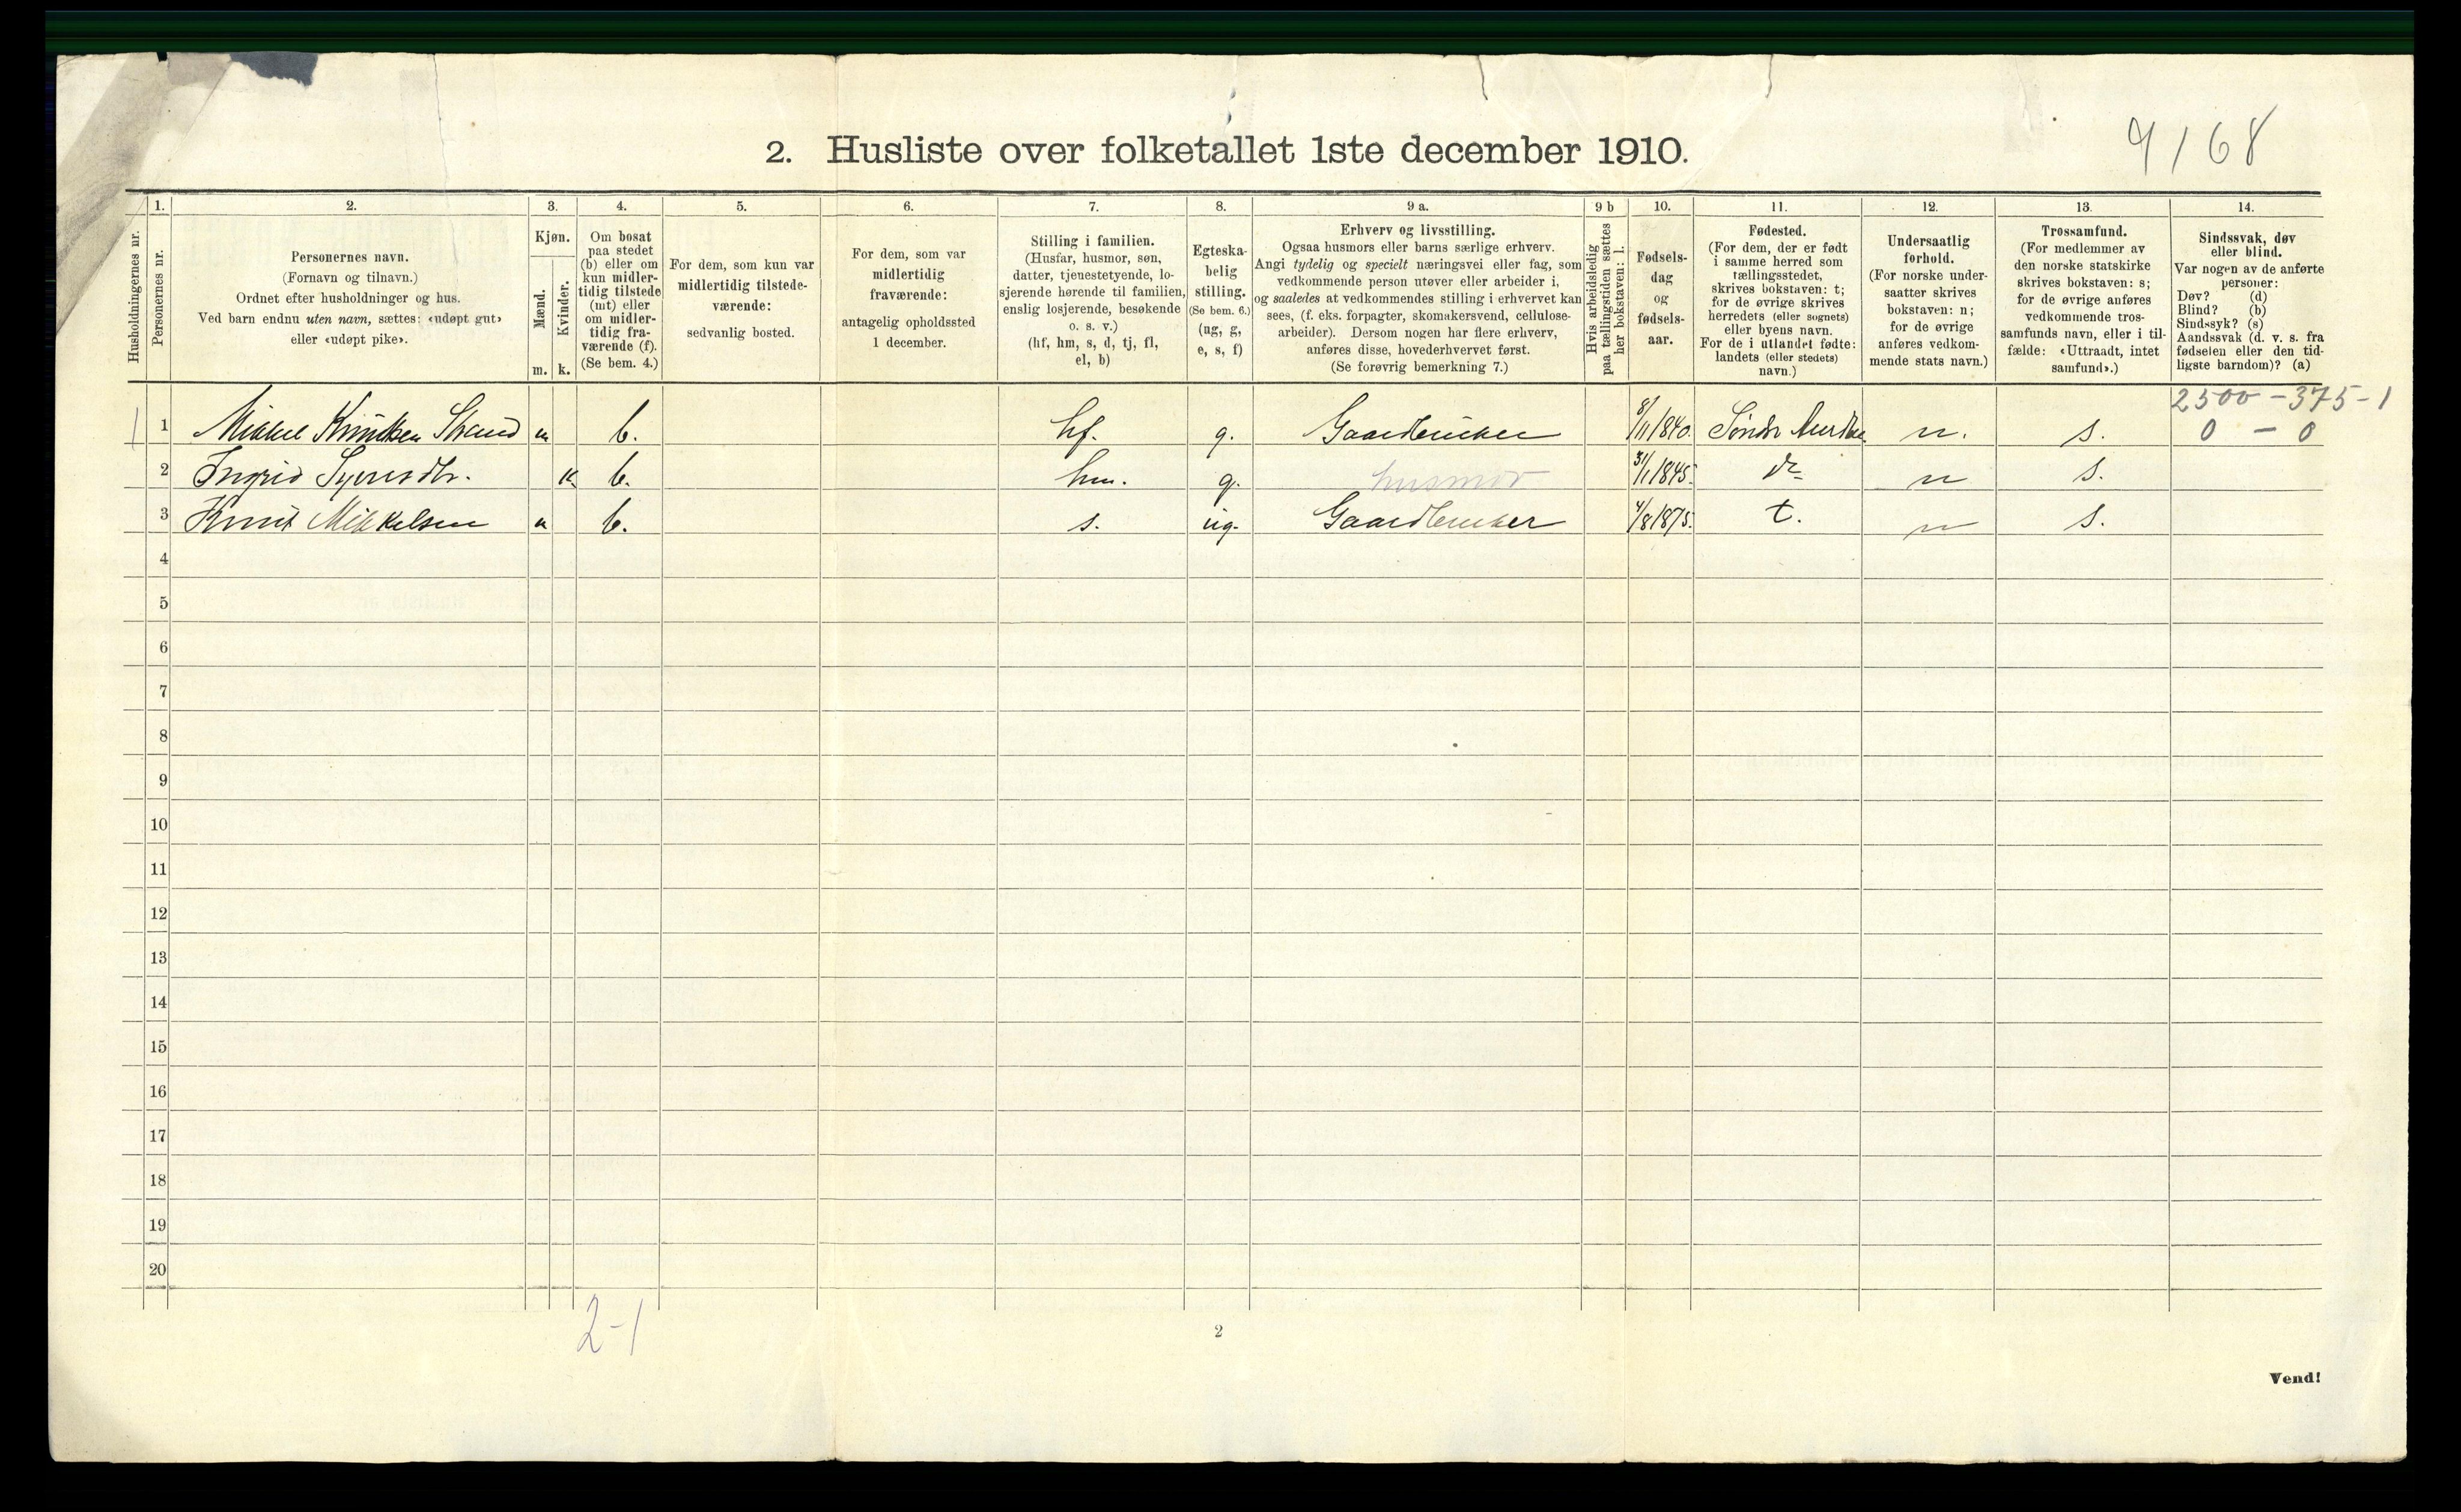 2. Husliste over folketallet 1ste december 1910.
9168
Husholdningernes nr.
1.
Personernes nr.
2.
Personernes navn.
(Fornavn og tilnavn.)
Ordnet efter husholdninger og hus.
Ved barn endnu uten navn, sættes: «udøpt gut»
eller «udøpt pike».
3.
Kjøn.
Mænd.
Kvinder.
m.
k.
4.
Om bosat
paa stedet
(b) eller om
kun midler-
tidig tilstede
(mt) eller
om midler-
tidig fra-
værende (f).
(Se bem. 4.)
5.
For dem, som kun var
midlertidig tilstede-
værende:
sedvanlig bosted.
6.
For dem, som var
midlertidig
fraværende:
antagelig opholdssted
1 december.
7.
Stilling i familien.
(Husfar, husmor, søn,
datter, tjenestetyende, lo-
sjerende hørende til familien,
enslig losjerende, besøkende
o. s. v.)
(hf, hm, s, d, tj, fl,
el, b)
8.
Egteska-
belig
stilling.
(Se bem. 6.)
(ug, g,
e, s, f)
9 a.
Erhverv og livsstilling.
Ogsaa husmors eller barns særlige erhverv.
Angi tydelig og specielt næringsvei eller fag, som
vedkommende person utøver eller arbeider i,
og saaledes at vedkommendes stilling i erhvervet kan
sees, (f. eks. forpagter, skomakersvend, cellulose-
arbeider). Dersom nogen har flere erhverv,
anføres disse, hovederhvervet først.
(Se forøvrig bemerkning 7.)
9 b
Hvis arbeidsledig
paa tællingstiden sættes
her bokstaven: l.
10.
Fødsels-
dag
og
fødsels-
aar.
11.
Fødested.
(For dem, der er født
i samme herred som
tællingsstedet,
skrives bokstaven: t;
for de øvrige skrives
herredets (eller sognets)
eller byens navn.
For de i utlandet fødte:
landets (eller stedets)
navn.)
12.
Undersaatlig
forhold.
(For norske under-
saatter skrives
bokstaven: n;
for de øvrige
anføres vedkom-
mende stats navn.)
13.
Trossamfund.
(For medlemmer av
den norske statskirke
skrives bokstaven: s;
for de øvrige anføres
vedkommende tros-
samfunds navn, eller i til-
fælde: «Uttraadt, intet
samfund».)
14.
Sindssvak, døv
eller blind.
Var nogen av de anførte
personer:
Døv? (d)
Blind? (b)
Sindssyk? (s)
Aandssvak (d. v. s. fra
fødselen eller den tid-
ligste barndom)? (a)
2500 - 375 - 1
1 1 Mikkel Knudsen Strand m b. hf. g. Gaardbruker 8/11 1840. Søndre Aurdal n. s. 0 - 0
2 Ingrid k b. hm. g. husmor 31/1 1845. do n s.
3 Knut Mikkelsen m b. s. ug. Gaardbruker 4/8 1875. t. n s.
4
5
6
7
8
9
10
11
12
13
14
15
16
17
18
19
20
2-1
2
Vend!